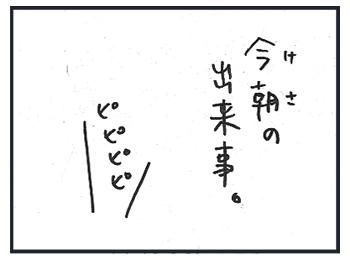 今朝の
けさ
出来事。
ピピピピ